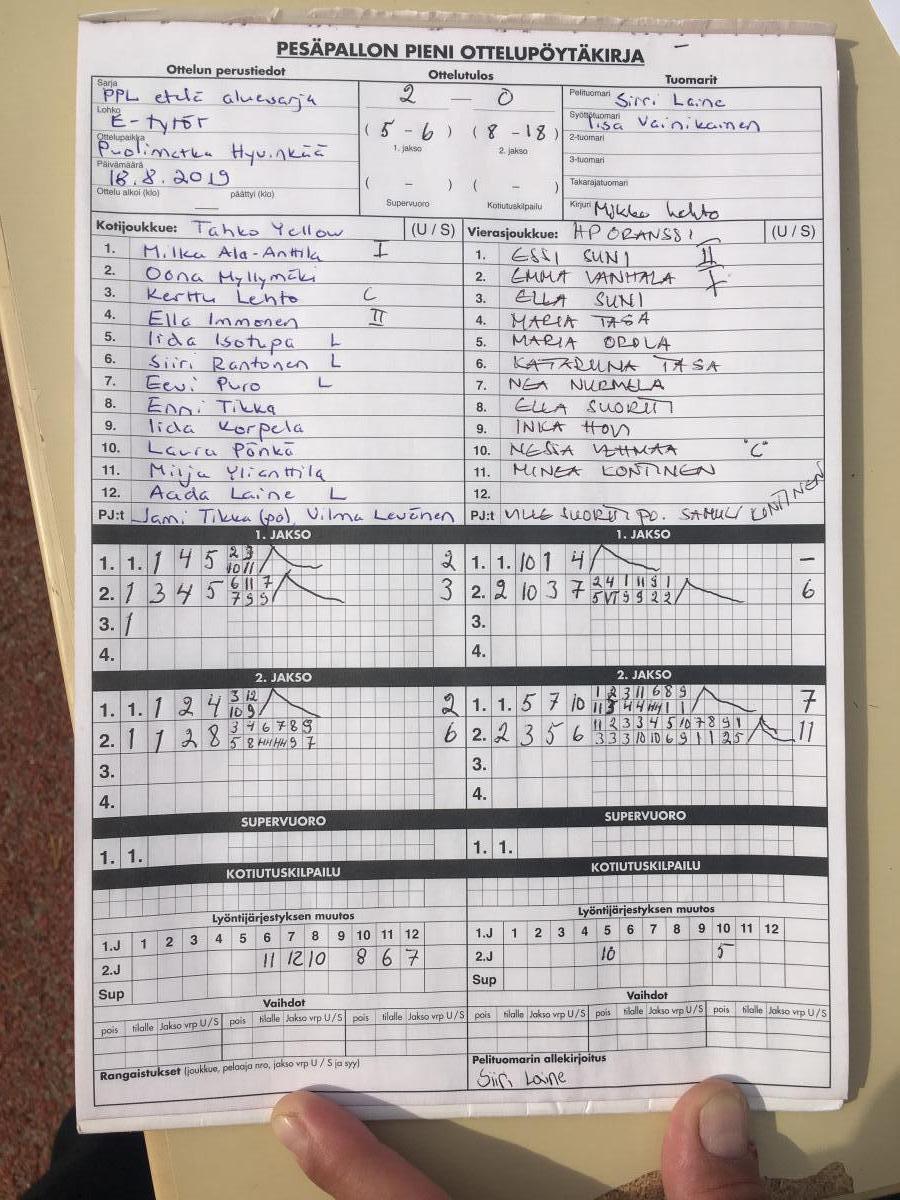 PESÄPALLON PIENI OTTELUPÖYTÄKIRJA
Ottelun perustiedot Ottelutulos Tuomarit
Sarja
PPL etelä aluesarja
Lohko
E-tytöt
Ottelupaikka
Puolimatka Hyvinkää
Päivämäärä
18.8.2019
Ottelu alkoi (klo) päättyi (klo)
2 — 0
( 5 - 6 ) ( 8 - 18 )
1. jakso 2. jakso
( - ) ( - )
Supervuoro Kotiutuskilpailu
Pelituomari Siiri Laine
Syöttötuomari Iisa Vainikainen
2-tuomari
3-tuomari
Takarajatuomari
Kirjuri Mikko Lehto
Kotijoukkue: Tahko Yellow (U / S)
1. Milka Ala-Anttila I
2. Oona Myllymäki
3. Kerttu Lehto C
4. Ella Immonen II
5. Iida Isotupa L
6. Siiri Rantonen L
7. Eevi Puro L
8. Enni Tikka
9. Iida Korpela
10. Laura Pönkä
11. Milja Ylianttila
12. Aada Laine L
PJ:t Jami Tikka (po), Vilma Levänen
Vierasjoukkue: HP ORANSSI (U / S)
1. ESSI SUNI II
2. EMMA VANHALA I
3. ELLA SUNI
4. MARIA TASA
5. MARIA OROLA
6. KATARIINA TASA
7. NEA NURMELA
8. ELLA SUORTTI
9. INKA HOVI
10. NESSA VEHMAA "C"
11. MINEA KONTINEN
12.
PJ:t VILLE SUORTTI PO. SAMULI KONTINEN
1. JAKSO
1. 1. 1 4 5 2 3 2
10 11
2. 1 3 4 5 6 11 7 3
7 9 9
3. 1
4.
2. JAKSO
1. 1. 1 2 4 3 12 2
10 9
2. 1 1 2 8 3 4 6 7 8 9 6
5 8 9 7
3.
4.
SUPERVUORO
1. 1.
KOTIUTUSKILPAILU
Lyöntijärjestyksen muutos
1.J 1 2 3 4 5 6 7 8 9 10 11 12
2.J 11 12 10 8 6 7
Sup
Vaihdot
pois tilalle Jakso vrp U / S pois tilalle Jakso vrp U / S pois tilalle Jakso vrp U / S
Rangaistukset (joukkue, pelaaja nro, jakso vrp U / S ja syy)
1. JAKSO
1. 1. 10 1 4 –
2. 2 10 3 7 2 4 1 11 9 1 6
5 9 9 2 2
3.
4.
2. JAKSO
1. 1. 5 7 10 1 2 3 11 6 8 9 7
11 4 4 1 1
2. 2 3 5 6 11 2 3 3 4 5 10 7 8 9 1 11
3 3 3 10 10 6 9 1 1 2 5
3.
4.
SUPERVUORO
1. 1.
KOTIUTUSKILPAILU
Lyöntijärjestyksen muutos
1.J 1 2 3 4 5 6 7 8 9 10 11 12
2.J 10 5
Sup
Vaihdot
pois tilalle Jakso vrp U / S pois tilalle Jakso vrp U / S pois tilalle Jakso vrp U / S
Pelituomarin allekirjoitus
Siiri Laine